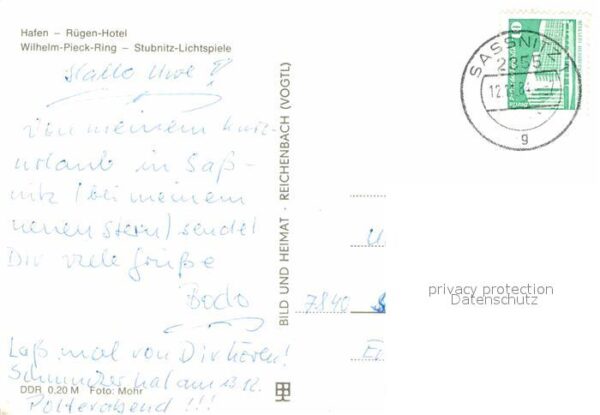 Hafen – Rügen-Hotel
Wilhelm-Pieck-Ring – Stubnitz-Lichtspiele
Hallo Uwe!
Von meinem Kurz-
urlaub in Saß-
nitz (bei meinem
neuen Stern) sendet
Dir viele Grüße
Bodo
Laß mal von Dir hören!
Schmunzer hat am 13.12.
Polterabend!!!
DDR 0,20 M Foto: Mohr
BILD UND HEIMAT · REICHENBACH (VOGTL)
SASSNITZ
2355
g
10
7840
privacy protection
Datenschutz